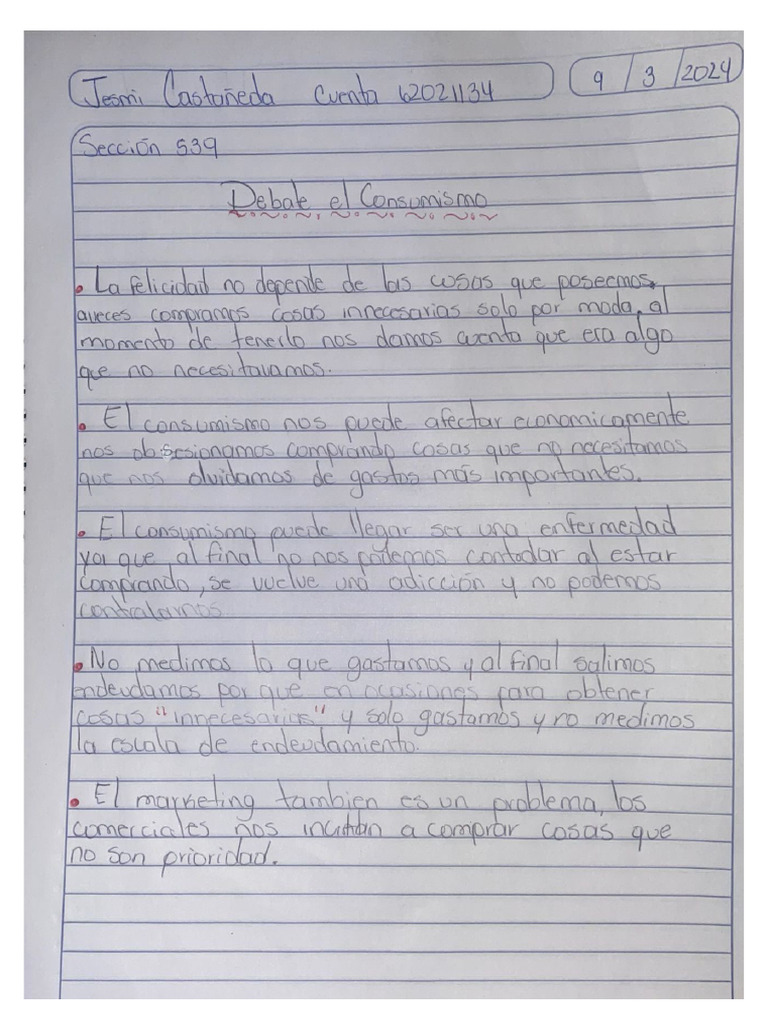 Jesmi Castañeda Cuenta 62021134
9/3/2024
Sección 539
Debate el Consumismo
• La felicidad no depende de las cosas que poseemos,
aveces compramos cosas innecesarias solo por moda, al
momento de tenerlo nos damos cuenta que era algo
que no necesitavamos.
• El consumismo nos puede afectar economicamente
nos obsesionamos comprando cosas que no necesitamos
que nos olvidamos de gastos más importantes.
• El consumismo puede llegar ser una enfermedad
ya que al final no nos podemos contodar al estar
comprando, se vuelve una adicción y no podemos
contralarnos
• No medimos lo que gastamos y al final salimos
endeudamos por que en ocasiones para obtener
cosas "innecesarias" y solo gastamos y no medimos
la escala de endeudamiento.
• El marketing tambien es un problema, los
comerciales nos incitan a comprar cosas que
no son prioridad.